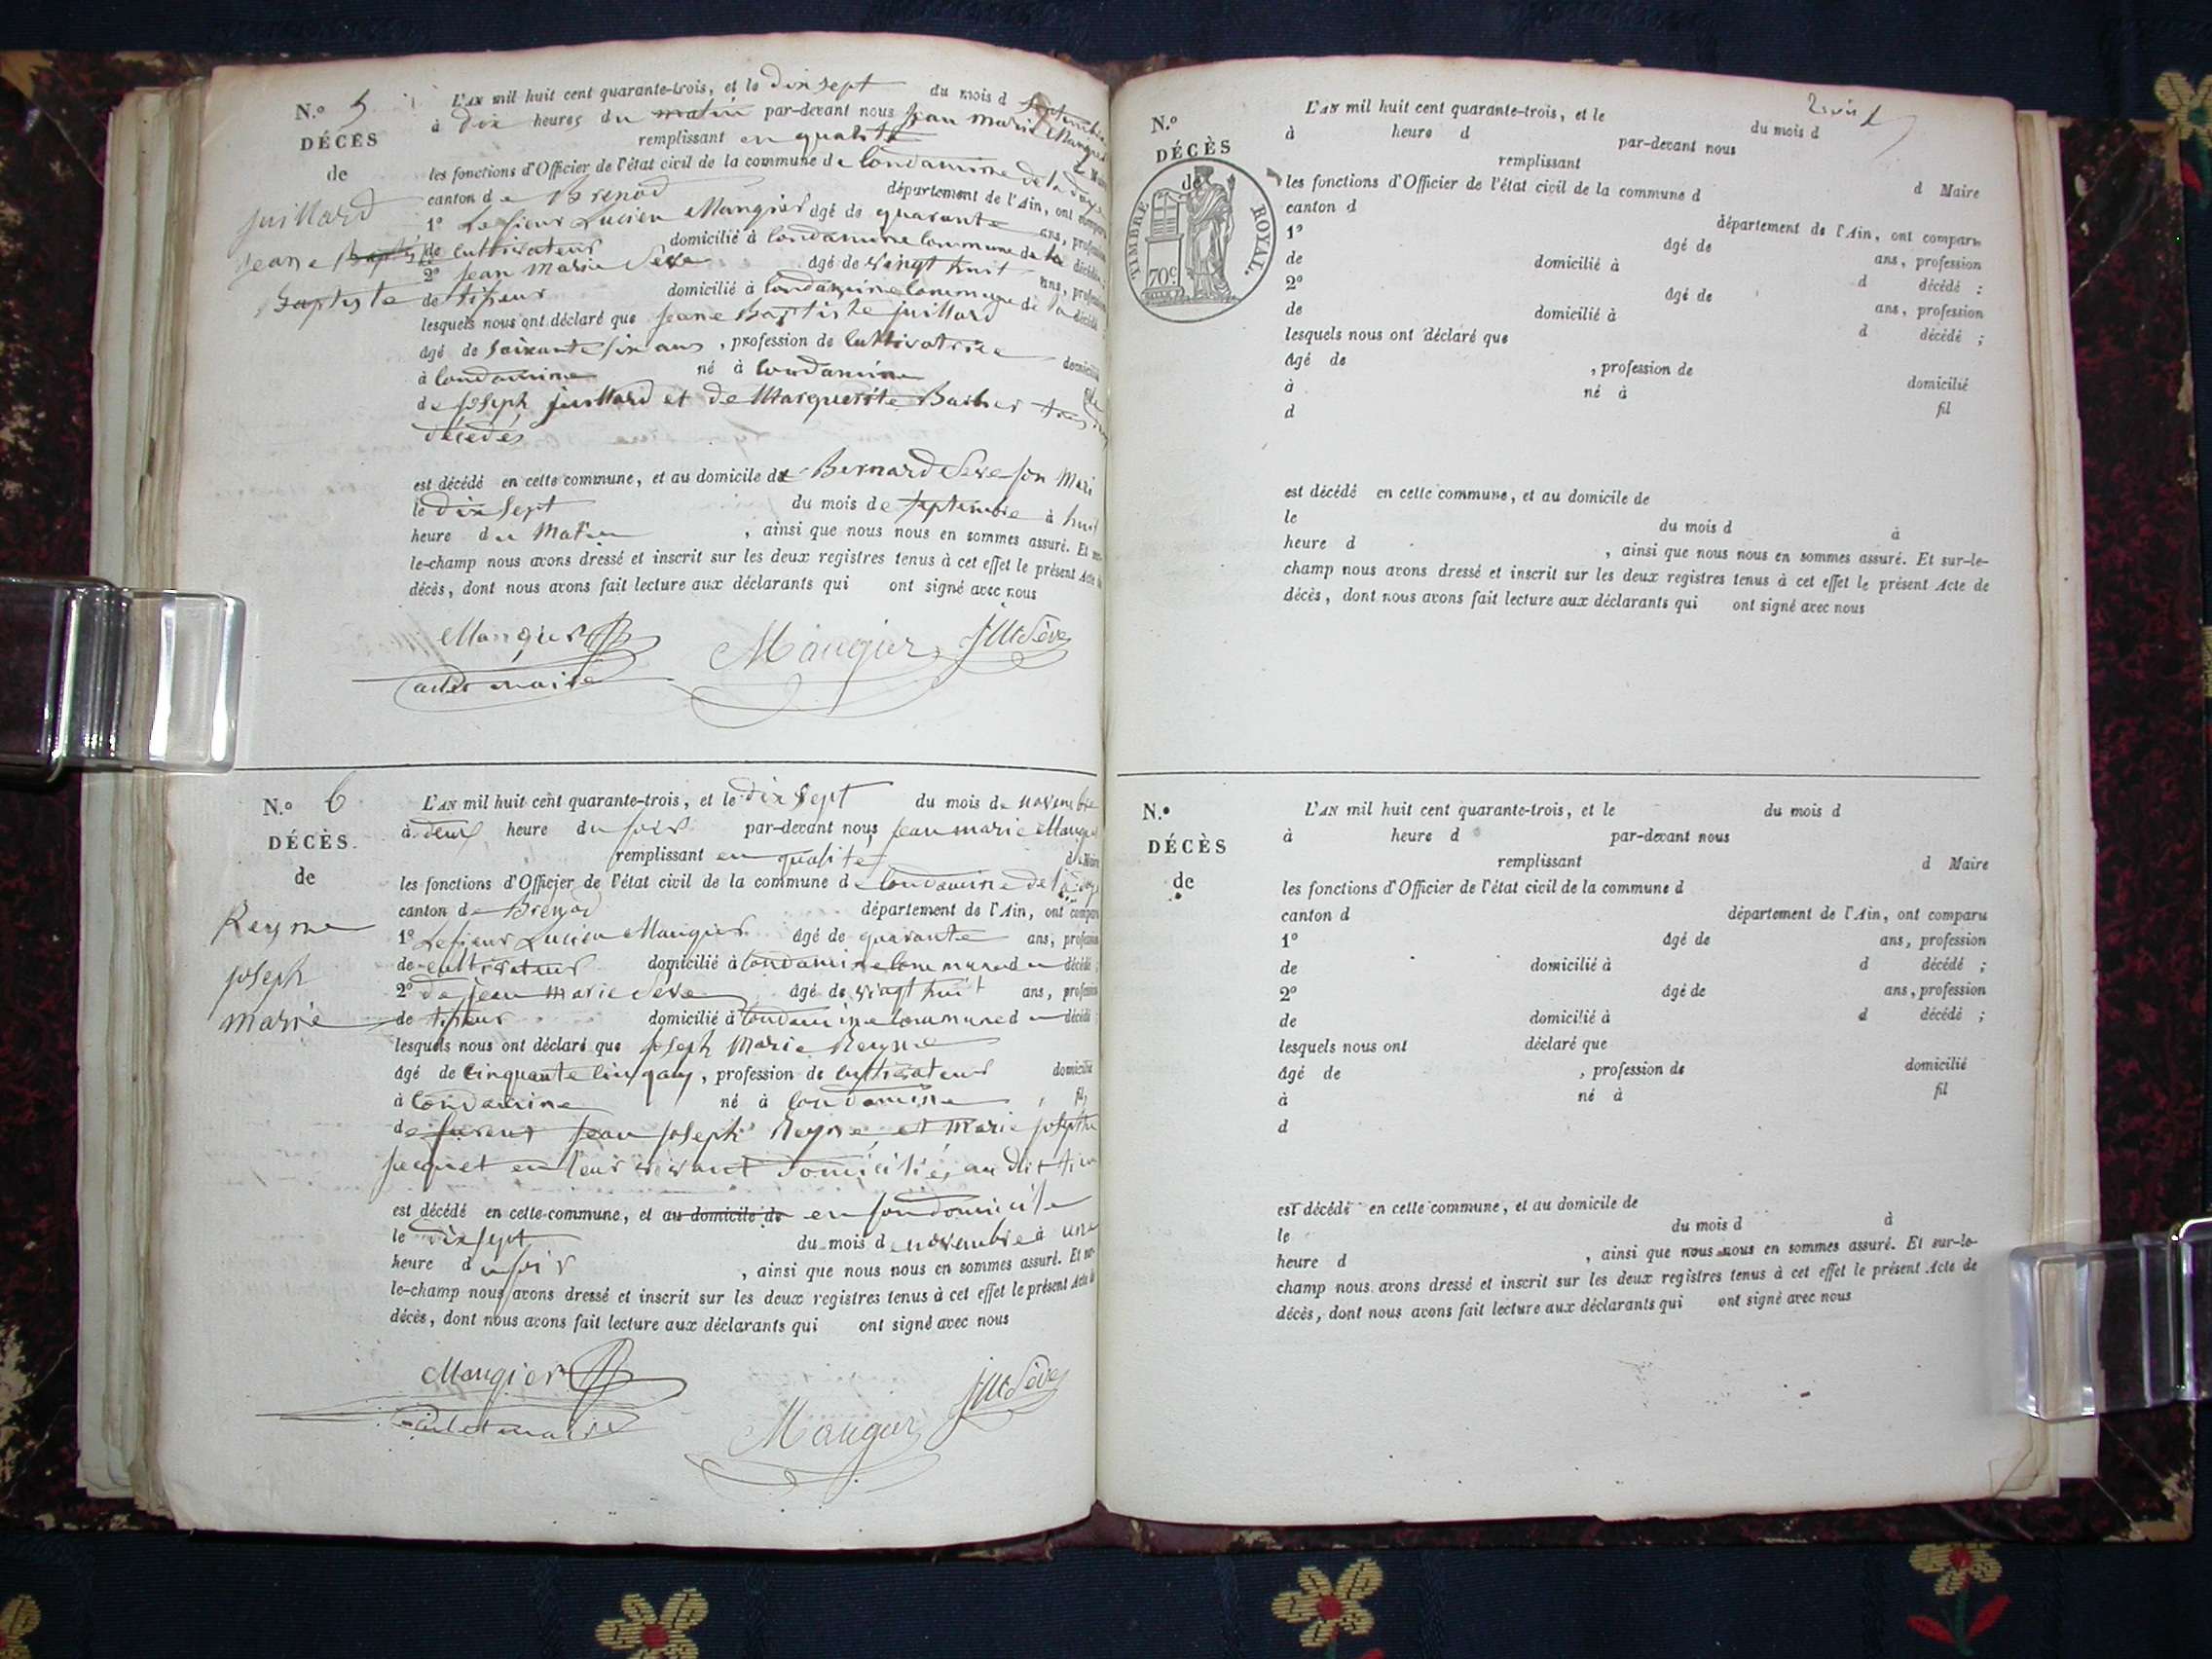 N.o 5
DÉCÈS
de
juillard
jeane Bapti
Baptiste
L'AN mil huit cent quarante-trois, et le dix sept du mois d septembre
à dix heures du matin par-devant nous jean marie Maugier
remplissant en qualité
les fonctions d'Officier de l'état civil de la commune de Condamine de la
canton de Brenod département de l'Ain, ont comparu
1o Le sieur Lucien Maugier âgé de quarante ans, profession
de cultivateur domicilié à Condamine Commune de la décédé
2o jean marie Seve âgé de vingt huit ans, profession
de tiseur domicilié à Condamine Commune de la décédé
lesquels nous ont déclaré que jeane Baptiste juillard
âgé de Soixante six ans, profession de Cultivatrice domicilié
à Condamine né à Condamine
de joseph juillard et de Marguerite Barbier
décédés
est décédé en cette commune, et au domicile de Bernard Seve son Mari
le dix Sept du mois de septembre à huit
heure du Matin, ainsi que nous nous en sommes assuré. Et
le-champ nous avons dressé et inscrit sur les deux registres tenus à cet effet le présent Acte de
décès, dont nous avons fait lecture aux déclarants qui ont signé avec nous
Maugier Maugier JM Sève
adet maire
N.o 6
DÉCÈS.
de
Reyne
joseph
marie
L'AN mil huit cent quarante-trois, et le dix sept du mois de novembre
à deux heure du soir par-devant nous jean marie Maugier
remplissant en qualité d Maire
les fonctions d'Officier de l'état civil de la commune de Condamine de la
canton de Brenod département de l'Ain, ont comparu
1o Le sieur Lucien Maugier âgé de quarante ans, profession
de cultivateur domicilié à Condamine Commune du décédé ;
2o de jean marie Seve âgé de vingt huit ans, profession
de tiseur domicilié à Condamine Commune du décédé
lesquels nous ont déclaré que joseph Marie Reyne
âgé de Cinquante Cinq ans, profession de cultivateur domicilié
à Condamine né à Condamine, fils
de jean joseph Reyne et marie josephte
jacquet en leur vivant domiciliés au dit lieu
est décédé en cette commune, et au domicile de en son domicile
le dix sept du mois de novembre à une
heure du soir, ainsi que nous nous en sommes assuré. Et sur
le-champ nous avons dressé et inscrit sur les deux registres tenus à cet effet le présent Acte de
décès, dont nous avons fait lecture aux déclarants qui ont signé avec nous
Maugier Maugier JM Sève
adet maire
N.o
DÉCÈS
de
TIMBRE ROYAL.
70c.
L'AN mil huit cent quarante-trois, et le du mois d
à heure d par-devant nous
remplissant d Maire
les fonctions d'Officier de l'état civil de la commune d
canton d département de l'Ain, ont comparu
1o âgé de ans, profession
de domicilié à d décédé :
2o âgé de ans, profession
de domicilié à d décédé ;
lesquels nous ont déclaré que
âgé de , profession de domicilié
à né à fil
d
est décédé en cette commune, et au domicile de
le du mois d à
heure d , ainsi que nous nous en sommes assuré. Et sur-le-
champ nous avons dressé et inscrit sur les deux registres tenus à cet effet le présent Acte de
décès, dont nous avons fait lecture aux déclarants qui ont signé avec nous
N.o
DÉCÈS
de
L'AN mil huit cent quarante-trois, et le du mois d
à heure d par-devant nous
remplissant d Maire
les fonctions d'Officier de l'état civil de la commune d
canton d département de l'Ain, ont comparu
1o âgé de ans, profession
de domicilié à d décédé ;
2o âgé de ans, profession
de domicilié à d décédé ;
lesquels nous ont déclaré que
âgé de , profession de domicilié
à né à fil
d
est décédé en cette commune, et au domicile de
le du mois d à
heure d , ainsi que nous nous en sommes assuré. Et sur-le-
champ nous avons dressé et inscrit sur les deux registres tenus à cet effet le présent Acte de
décès, dont nous avons fait lecture aux déclarants qui ont signé avec nous